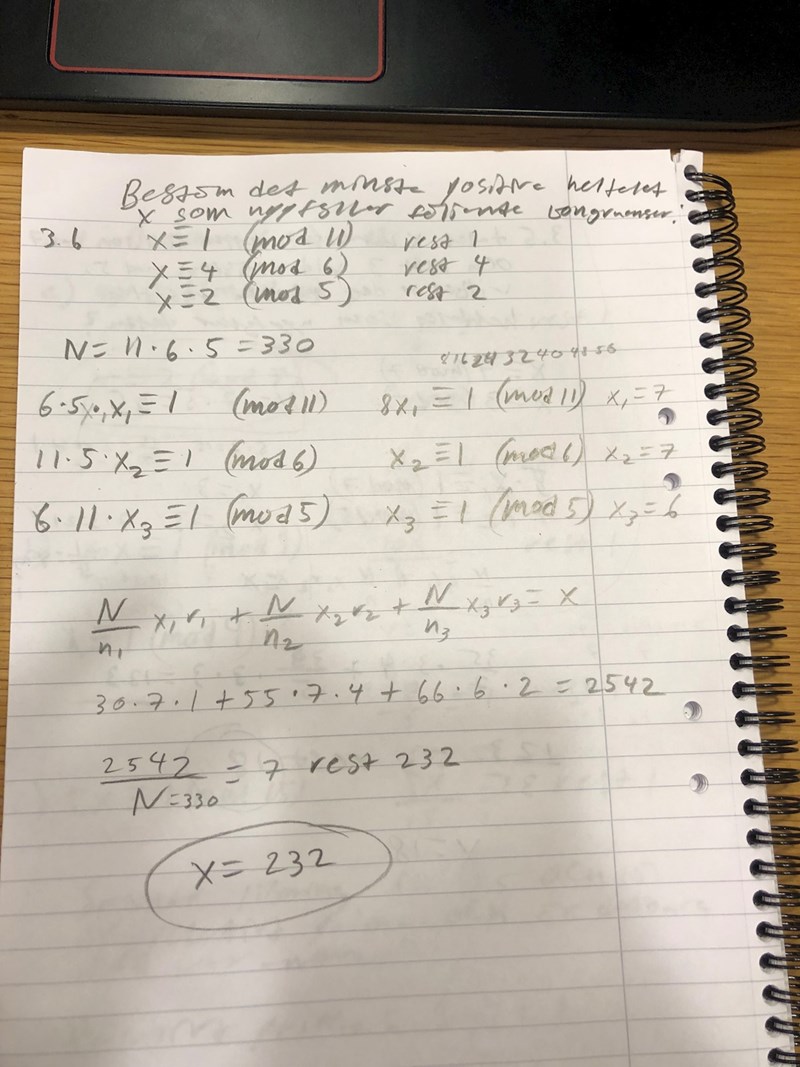 Bestäm det minsta positiva heltalet
x som uppfyller följande kongruenser:
3.6 x ≡ 1 (mod 11) rest 1
x ≡ 4 (mod 6) rest 4
x ≡ 2 (mod 5) rest 2
N = 11 · 6 · 5 = 330
8 16 24 32 40 48 56
6 · 5 · x₁ ≡ 1 (mod 11) 8x₁ ≡ 1 (mod 11) x₁ = 7
11 · 5 · x₂ ≡ 1 (mod 6) x₂ ≡ 1 (mod 6) x₂ = 7
6 · 11 · x₃ ≡ 1 (mod 5) x₃ ≡ 1 (mod 5) x₃ = 6
N/n₁ x₁r₁ + N/n₂ x₂r₂ + N/n₃ x₃r₃ = x
30 · 7 · 1 + 55 · 7 · 4 + 66 · 6 · 2 = 2542
2542/N=330 = 7 rest 232
x = 232